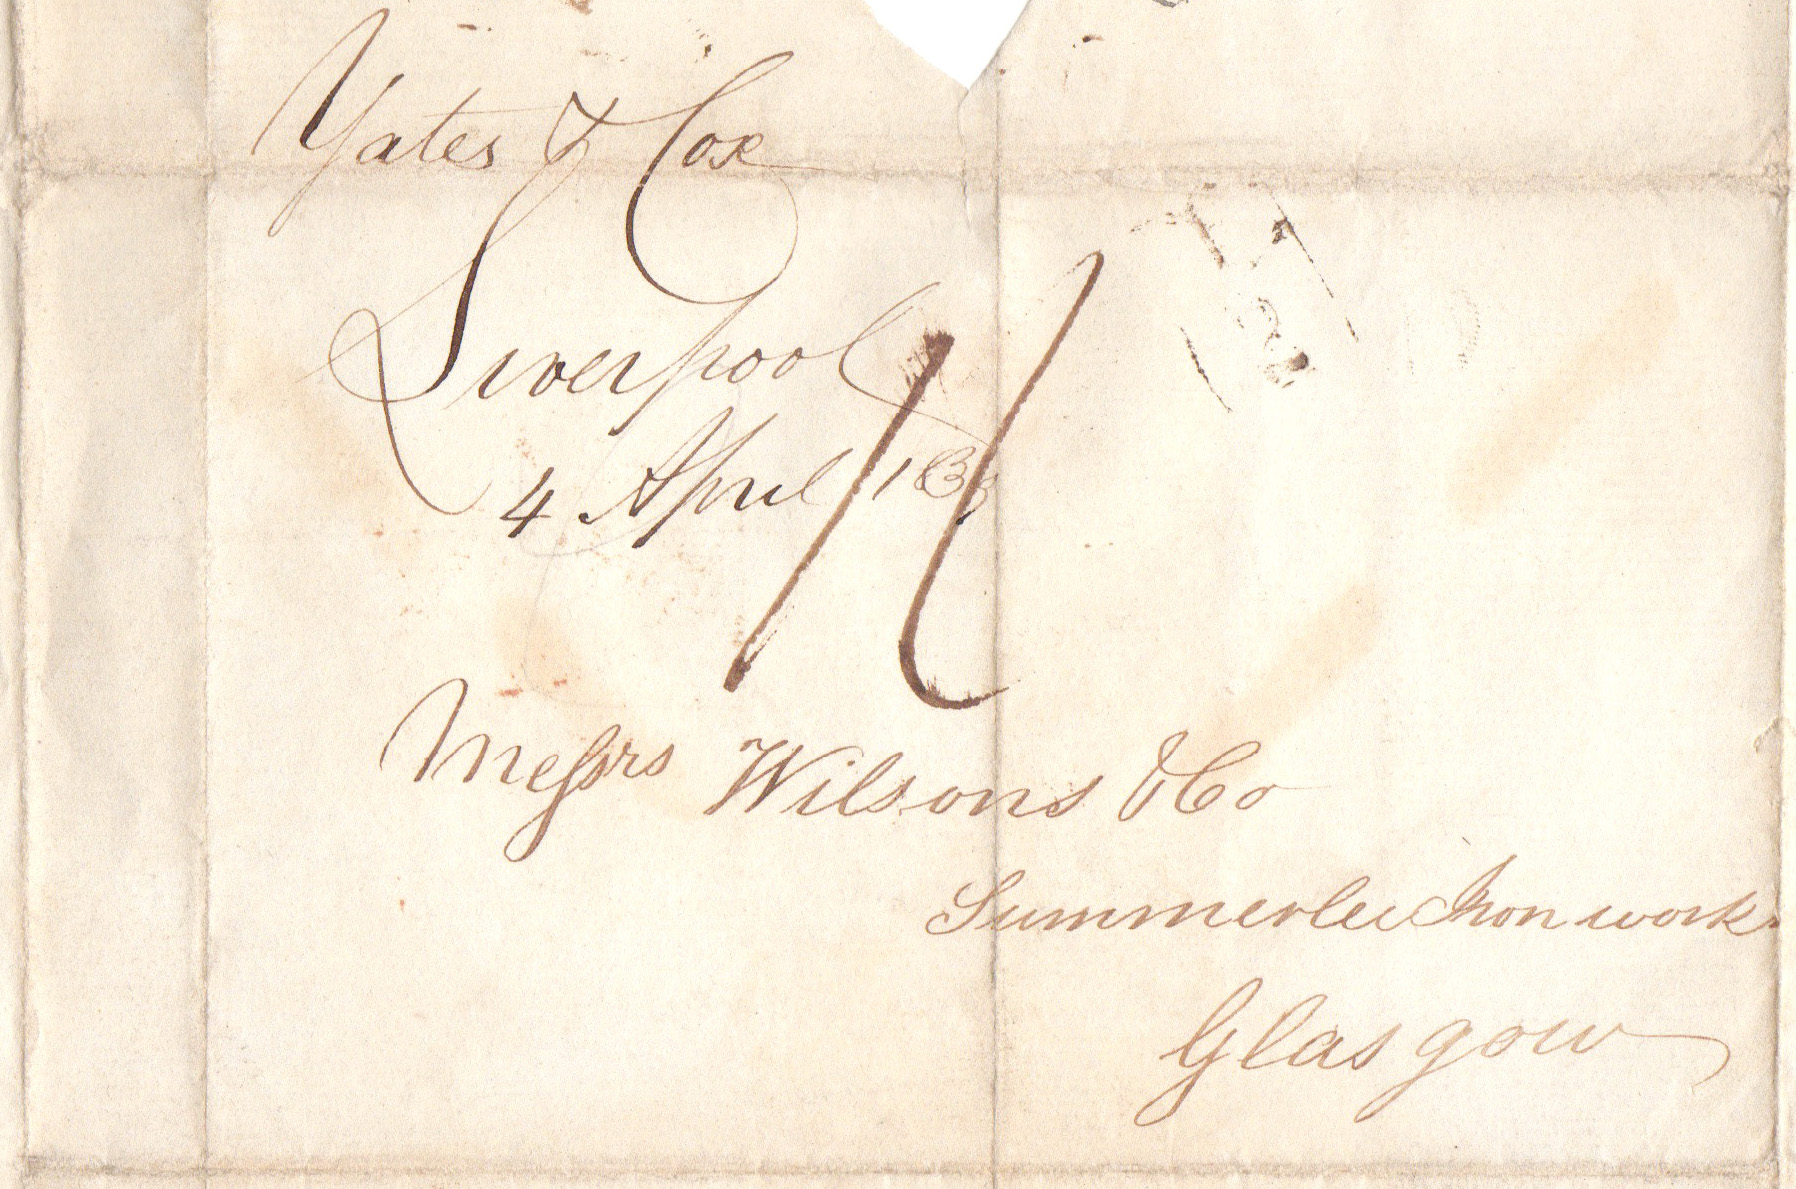 Yates & Cox
Liverpool
4 April 183
1/
2
Messrs Wilsons & Co
Summerlee Iron works
Glasgow